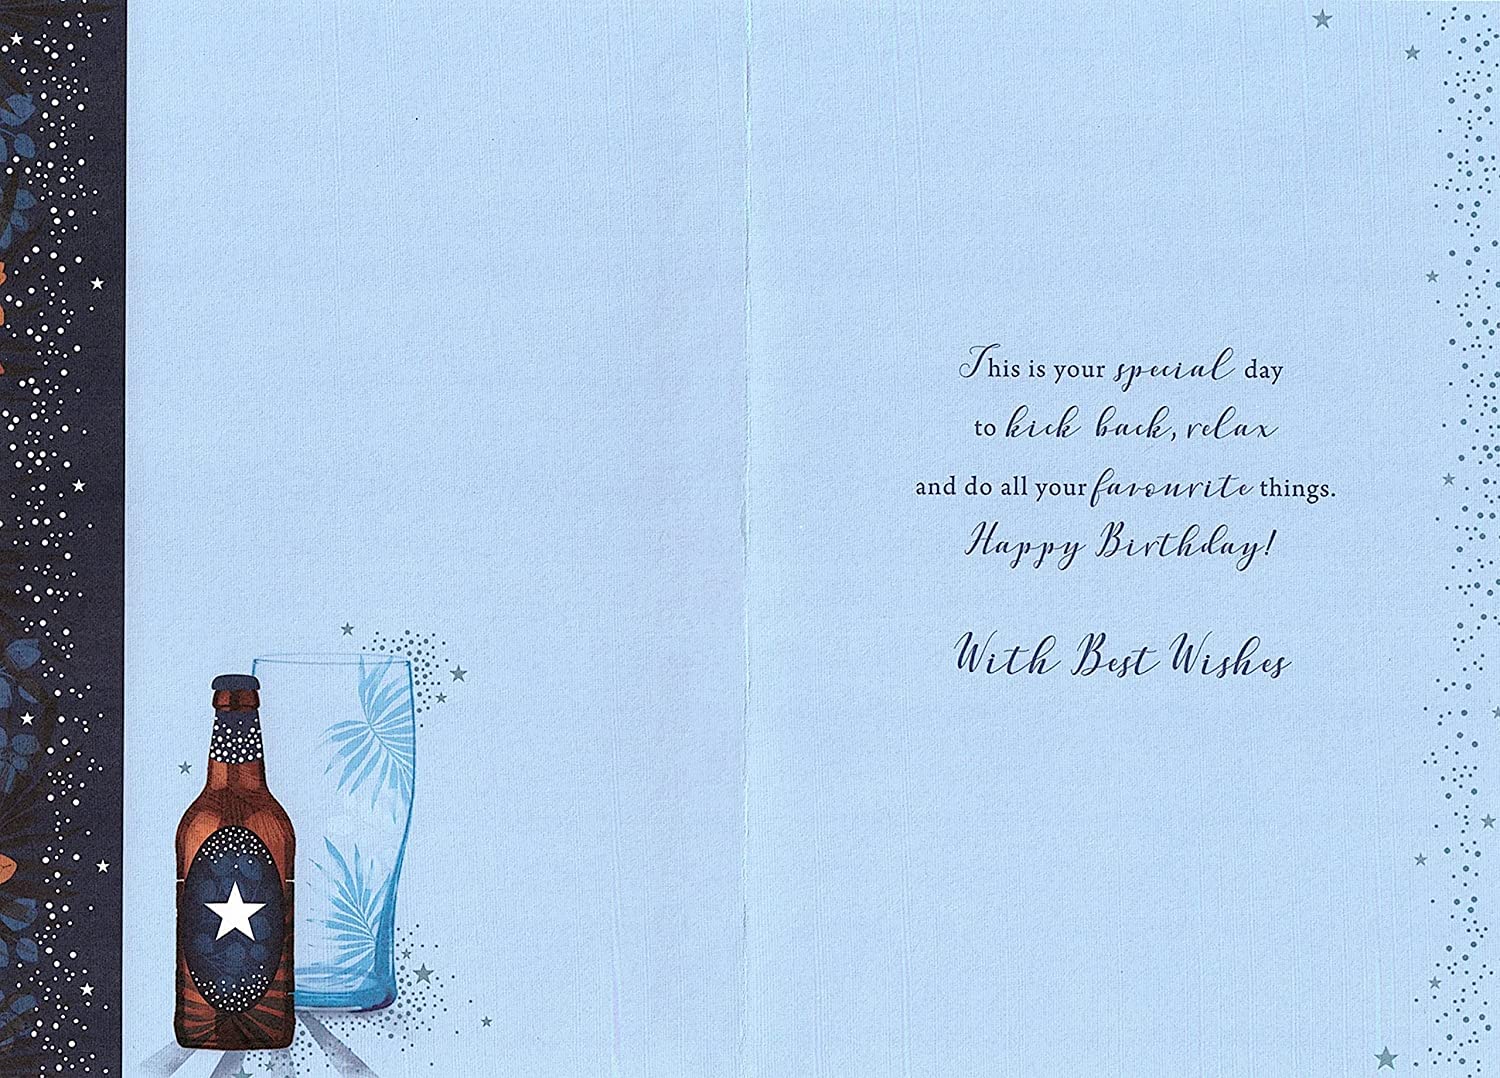 This is your special day
to kick back, relax
and do all your favourite things.
Happy Birthday!
With Best Wishes